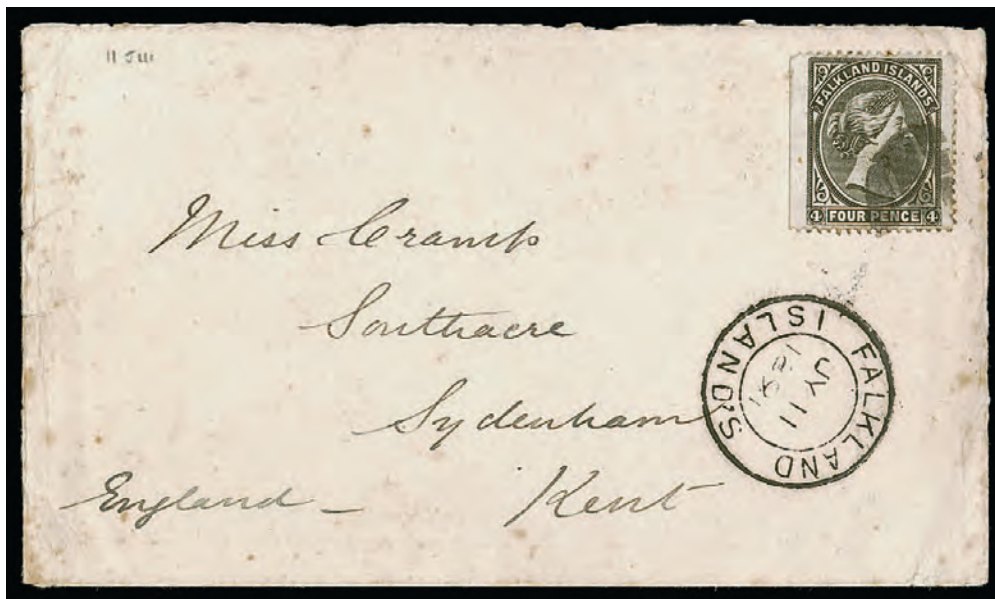 FALKLAND ISLANDS
4 FOUR PENCE 4
Miss Cramp
Southacre
Sydenham
Kent
England
FALKLAND ISLAND'S
JY 11